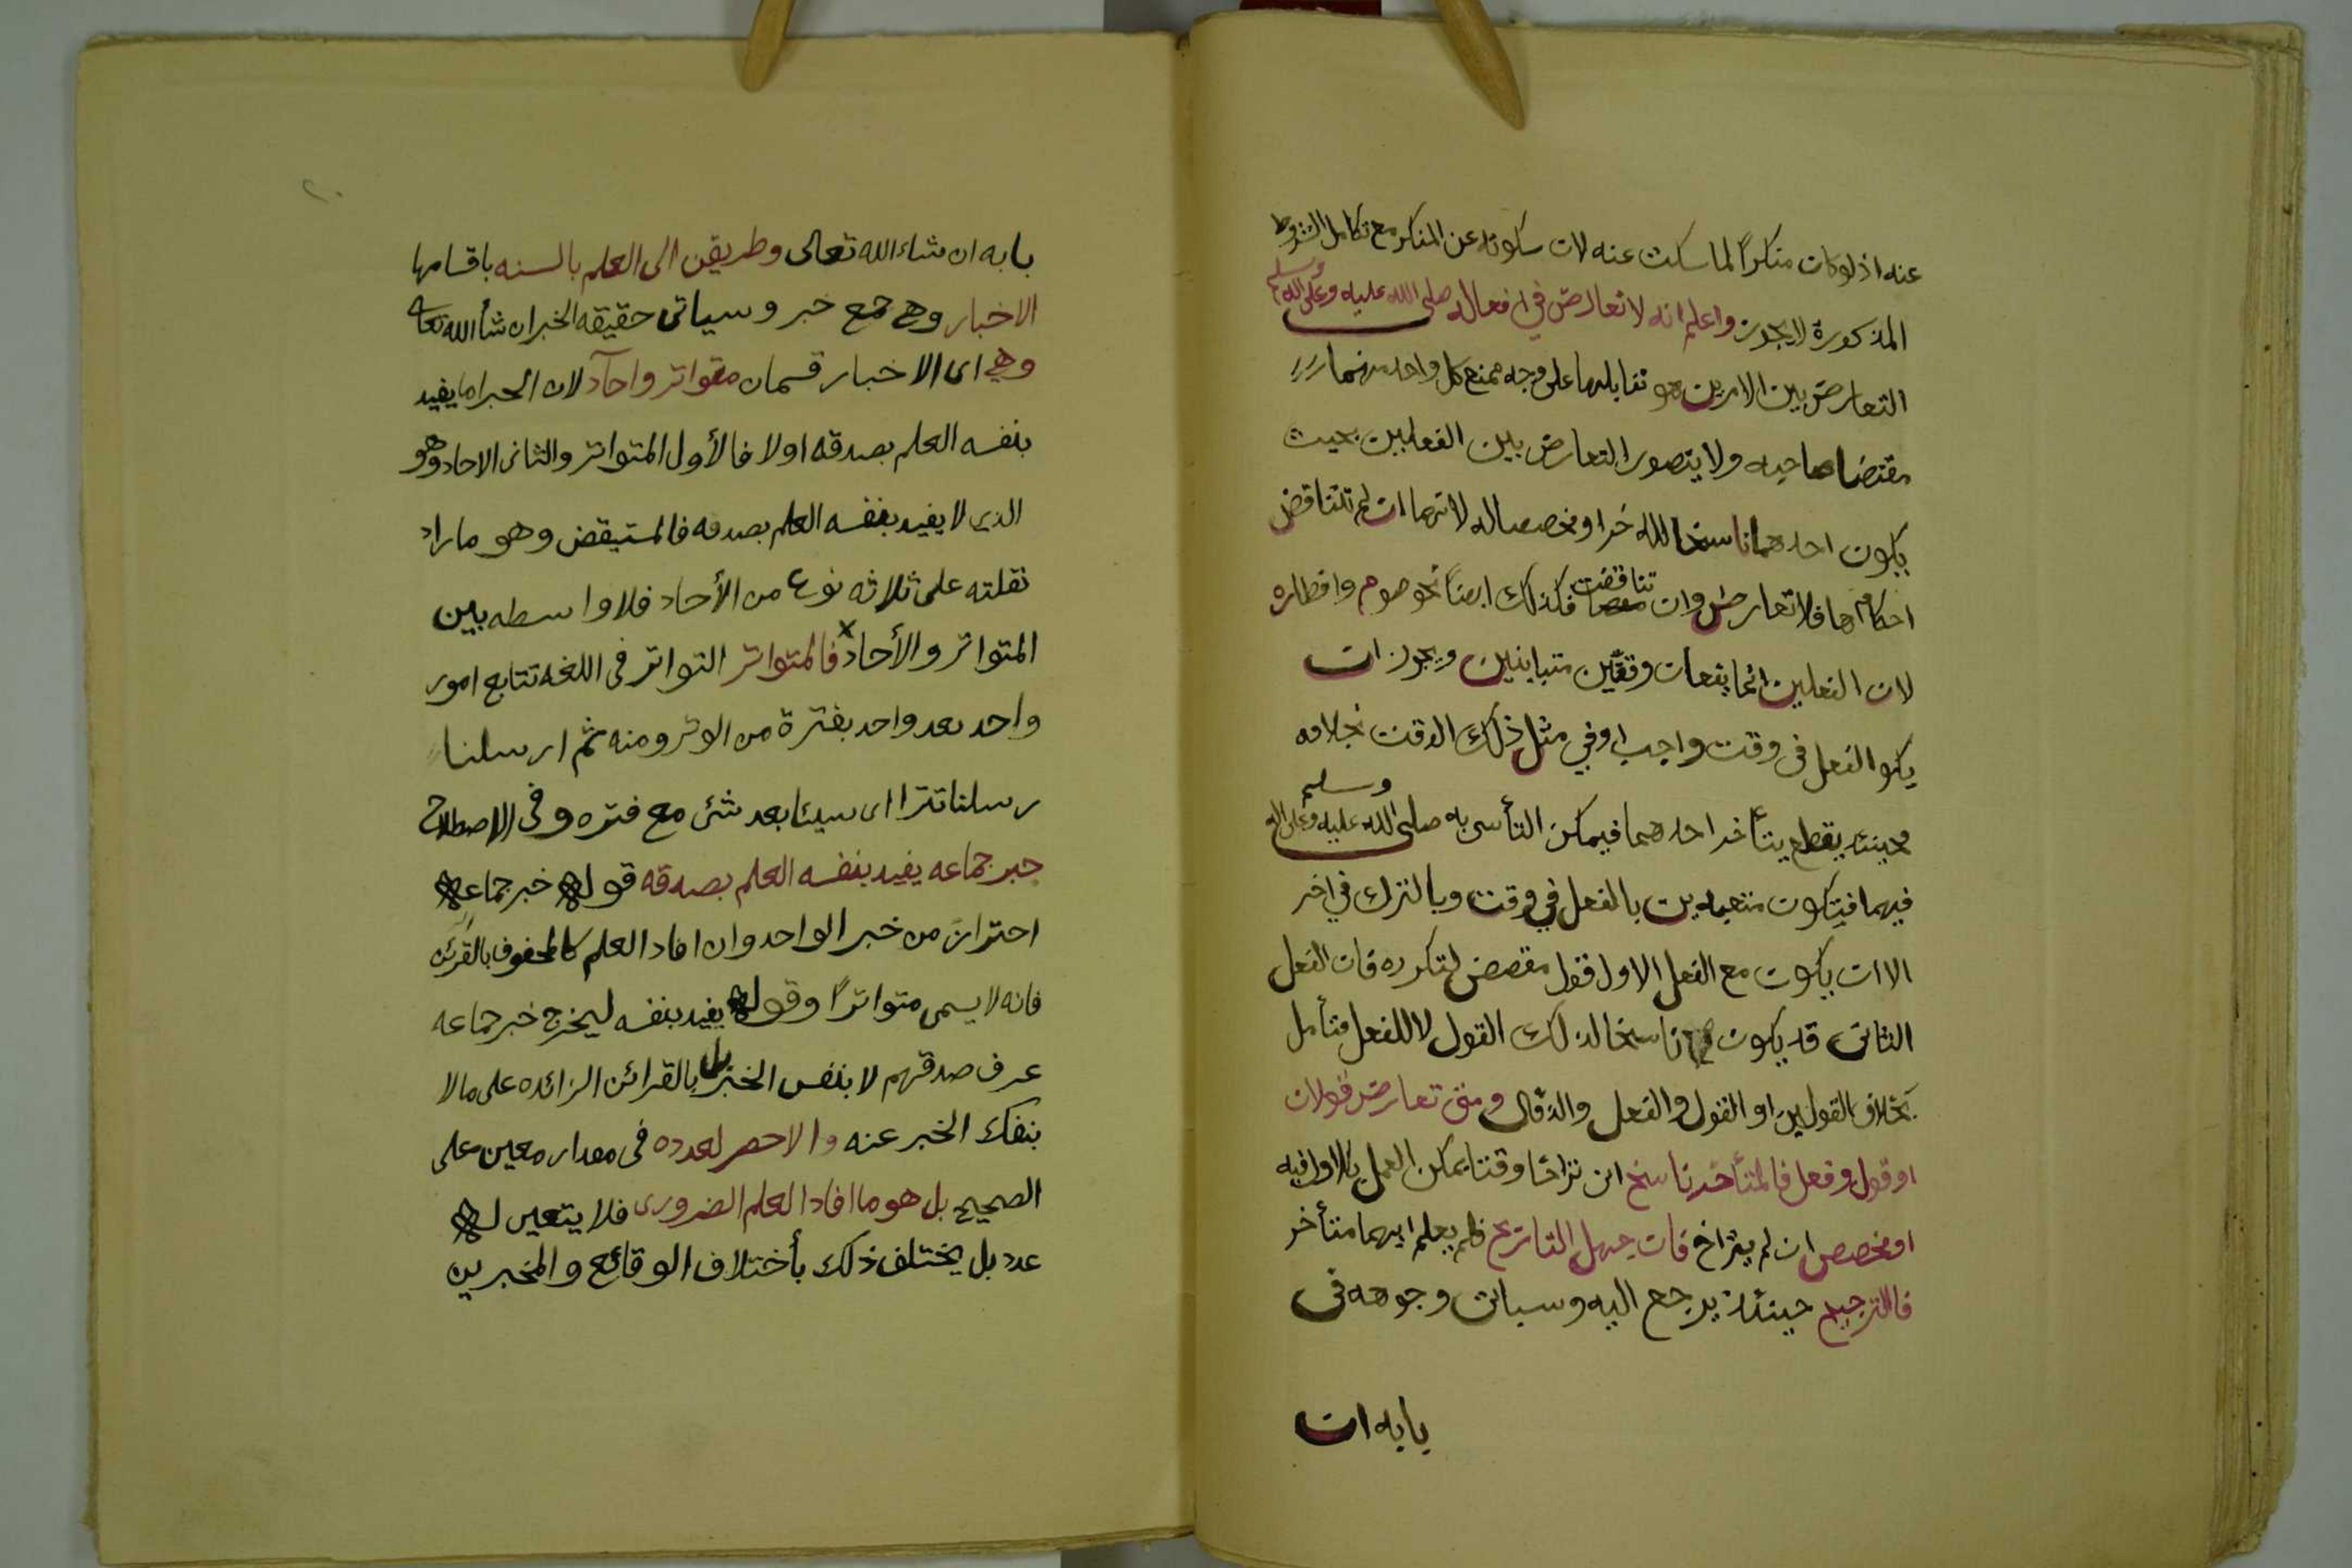 عنه اذ لو كان منكراً لما سكت عنه لان سكوته عن المنكر مع تكامل الشروط
المذكورة لا يجوز واعلم انه لا تعارض في افعاله صلى الله عليه وعلى اله وسلم
التعارض بين الامرين هو تقابلهما على وجه يمنع كل واحد منهما
مقتضا صاحبه ولا يتصور التعارض بين الفعلين بحيث
يكون احدهما ناسخا للاخر او مخصصا له لانهما ان لم تتناقض
احكامهما فلا تعارض وان تناقضت فكذلك ايضاً نحو صوم وافطاره
لان الفعلين انما يقعان وقتين متباينين ويجوز ان
يكو الفعل في وقت واجب او في مثل ذلك الوقت بخلافه
فحينئذ يقطع بتأخر احدهما فيمكن التأسي به صلى الله عليه وعلى اله وسلم
فيهما فيكون متعبدين بالفعل في وقت وبالترك في اخر
الا ان يكون مع الفعل الاول قول مقتض لتكرره فان الفعل
الثاني قد يكون ناسخا لذلك القول لا للفعل فتأمل
بخلاف القولين او القول والفعل ومتى تعارض قولان
او قول وفعل فالمتأخر ناسخ ان تراخا وقتا يمكن العمل بالاول فيه
او مخصص ان لم يتراخ فان جهل التاريخ فلم يعلم ايهما متأخر
فالترجيح حينئذ يرجع اليه وسياتي وجوهه في
بابه ان
٢٠
بابه ان شاء الله تعالى وطريقن الى العلم بالسنه باقسامها
الاخبار وهي جمع خبر وسياتي حقيقه الخبر ان شأ الله تعالى
وهي اى الاخبار قسمان متواتر وآحاد لان الخبر اما يفيد
بنفسه العلم بصدقه اولا فالأول المتواتر والثانى الاحاد وهو
الذى لا يفيد بنفسه العلم بصدقه فالمستيقض وهو مازاد
نقلته على ثلاثه نوع من الأحاد فلا واسطه بين
المتواتر والأحاد فالمتواتر التواتر فى اللغه تتابع امور
واحد بعد واحد بفترة من الوتر ومنه ثم ارسلنا
رسلنا تترا اى سيئا بعد شئ مع فتره وفى الاصطلاح
خبر جماعه يفيد بنفسه العلم بصدقه قوله خبر جماعه
احترازً من خبر الواحد وان افاد العلم كالمحفوف بالقرئن
فانه لا يسمى متواتراً وقوله يفيد بنفسه ليخرج خبر جماعه
عرف صدقهم لا بنفس الخبر بل بالقرائن الزائده على مالا
ينفك الخبر عنه والاحصر لعدده فى مقدار معين على
الصحيح بل هو ما افاد العلم الضرورى فلا يتعين له
عدد بل يختلف ذلك بأختلاف الوقائع والمخبرين